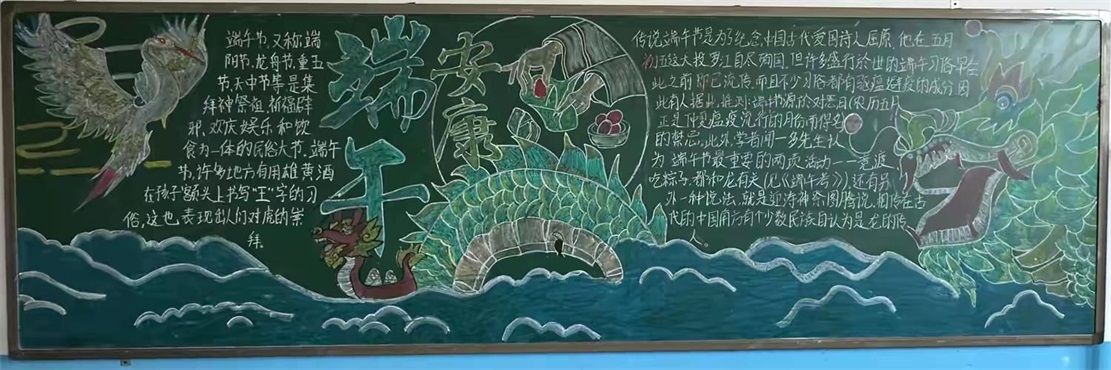 端午节,又称端
阳节、龙舟节、重五
节、天中节等是集
拜神祭祖、祈福辟
邪、欢庆娱乐和饮
食为一体的民俗大节,端午
节,许多地方有用雄黄酒
在孩子额头上书写“王”字的习
俗,这也表现出人们对虎的崇
拜
端午
安康
传说端午节是为了纪念中国古代爱国诗人屈原,他在五月
初五这天投汨罗江自尽殉国,但许多盛行於世的端午习俗早在
此之前即已流传,而且不少习俗都有驱瘟避疫的成分因
此有人据此推测端午节源於对恶日(农历五月
正是仲夏瘟疫流行的月份而得名
的禁忌,此外,学者闻一多先生认
为端午节最重要的两项活动——竞渡
吃粽子,都和龙有关(见《端午考》)还有另
外一种说法,就是近涛神祭图腾说,相传在古
代的中国南方有个少数民族自认为是龙的传
人。